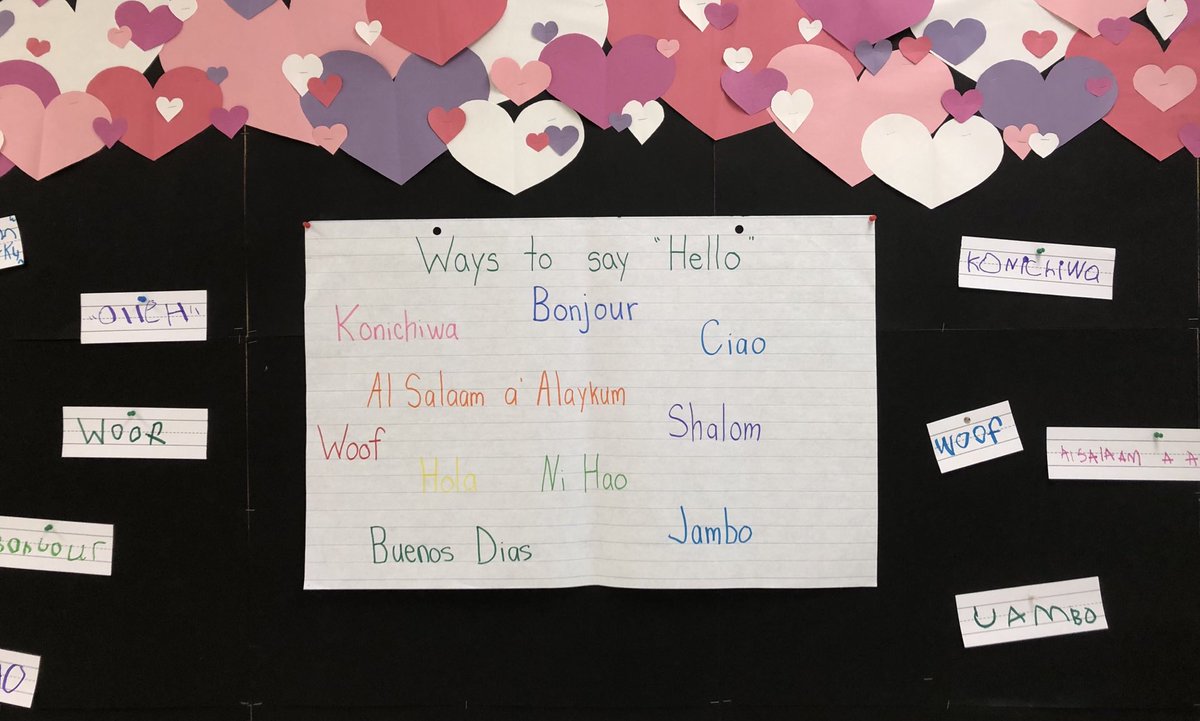 Ways to say "Hello"
Bonjour
Konichiwa
Ciao
Al Salaam a' Alaykum
Shalom
Woof
Hola
Ni Hao
Jambo
Buenos Dias
WOOR
KONICHIWA
WOOF
AlSALAAM A A
UAMBO